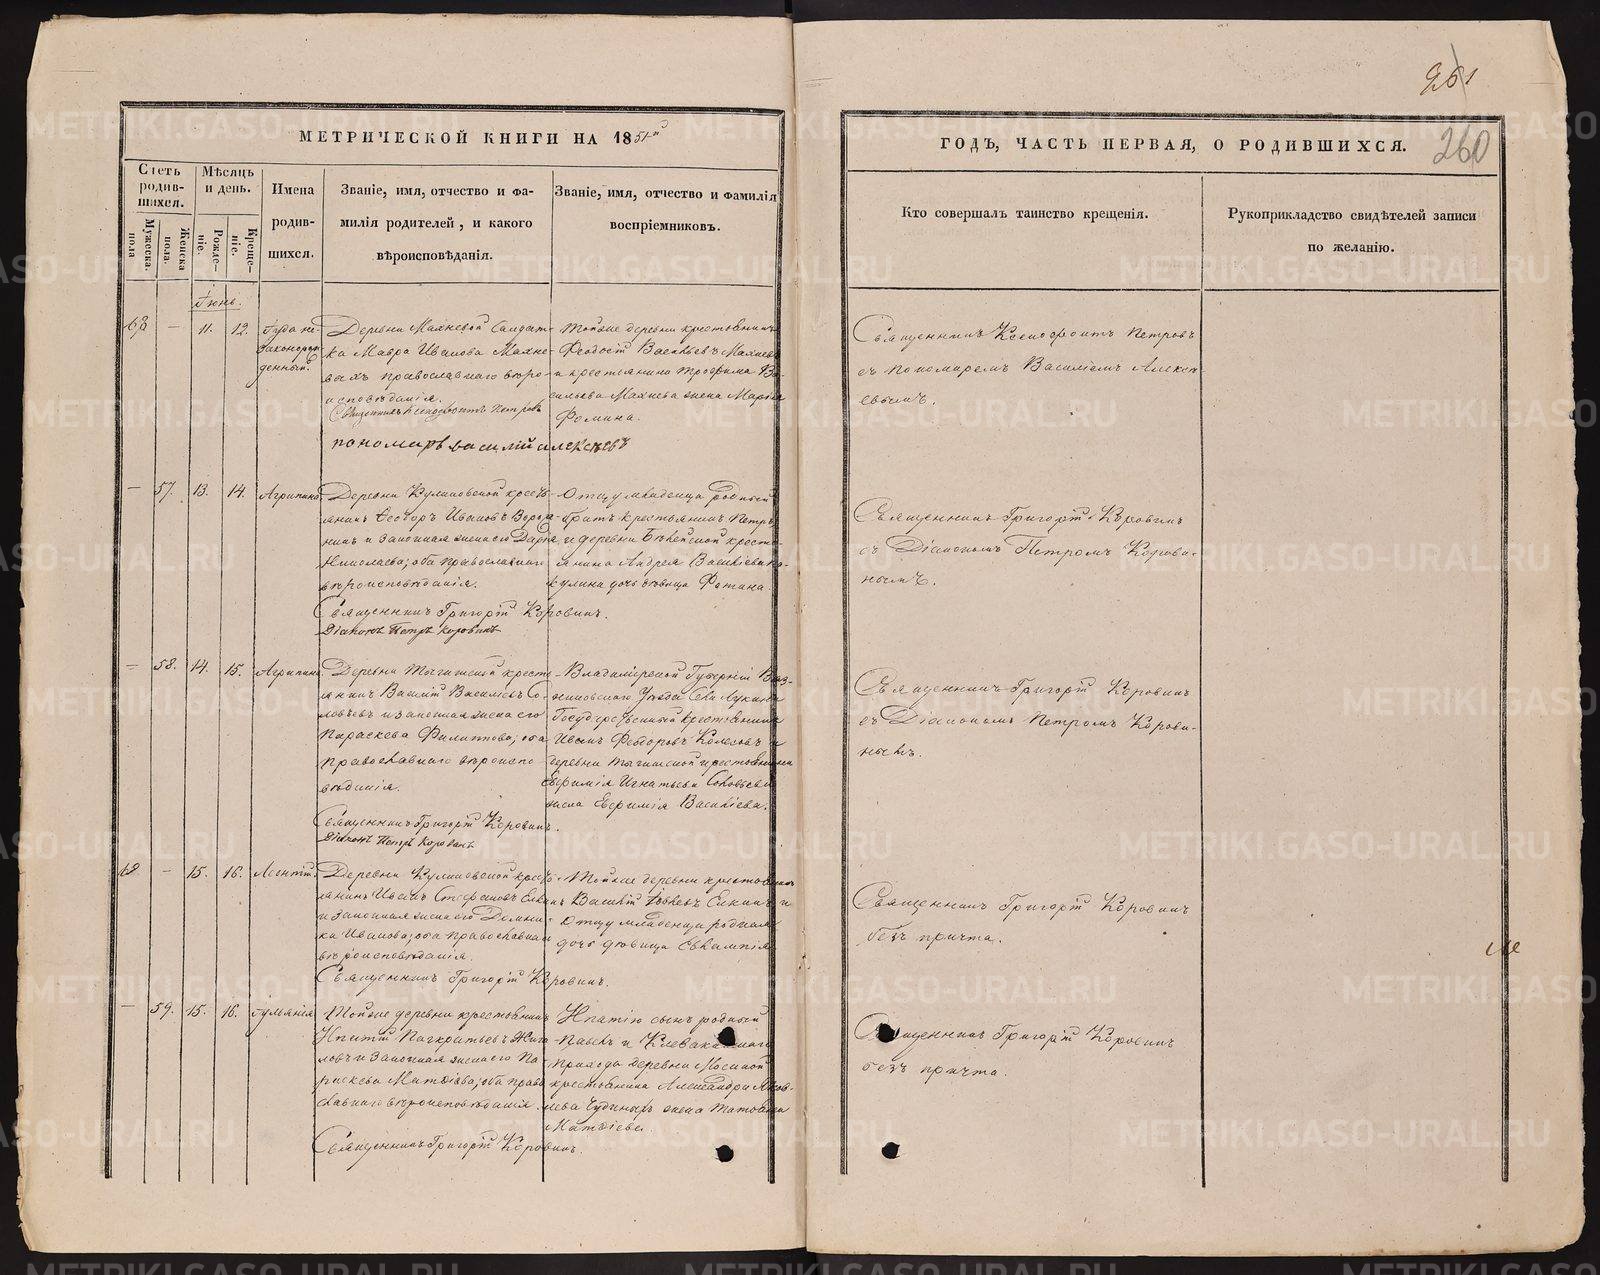 261
260
МЕТРИЧЕСКОЙ КНИГИ НА 1851й
Счетъ родив-шихся.
Мѣсяцъ и день.
Имена родив-шихся.
Званіе, имя, отчество и фа-милія родителей, и какого вѣроисповѣданія.
Званіе, имя, отчество и фамилія воспріемниковъ.
Мужеска пола
Женска пола
Рожде-ніе.
Креще-ніе.
ГОДЪ, ЧАСТЬ ПЕРВАЯ, О РОДИВШИХСЯ.
Кто совершалъ таинство крещенія.
Рукоприкладство свидѣтелей записи по желанію.
Іюнь.
— 11. 12.
Деревни Махневой Солдат-
ка Мавра Иванова Махне-
ва православнаго вѣро-
исповѣданія.
Священникъ Ксенофонтъ Петровъ
пономарь василій алексѣевъ
Тойже деревни крестьянинъ
Феодосій Васильевъ Махневъ
и крестьянина Трофима Ва-
сильева Махнева жена Марія
Фомина.
Священникъ Ксенофонтъ Петровъ
съ пономаремъ Василіемъ Алексѣ-
евымъ.
— 57. 13. 14. Агрипина
крестъ-
янинъ Ѳеодоръ Ивановъ
и законная жена его Дарья
Николаева; оба православнаго
вѣроисповѣданія.
Священникъ Григорій Коровинъ.
Діаконъ Петръ Коровинъ
Отцу младенца родный
братъ крестьянинъ Петръ
и деревни кресть-
янина Андрея Василіева
дочь дѣвица
Священникъ Григорій Коровинъ
съ Діакономъ Петромъ Корови-
нымъ.
— 58. 14. 15. Агрипина
Деревни кресть-
янинъ Василій Василіевъ Со-
ловьевъ и законная жена его
Параскева Филиппова; оба
православнаго вѣроиспо-
вѣданія.
Священникъ Григорій Коровинъ.
Діаконъ Петръ Коровинъ
Владимірской Губерніи Вяз-
никовскаго Уѣзда
Государственный крестьянинъ
Иванъ Феодоровъ и
деревни крестьянина
Игнатьева Соловьева
жена Евфимія Василіева.
Священникъ Григорій Коровинъ
съ Діакономъ Петромъ Корови-
нымъ.
— 15. 16. Леонтій.
Деревни кресть-
янинъ Иванъ Стефановъ
и законная жена его Домни-
ка Иванова; оба православнаго
вѣроисповѣданія.
Священникъ Григорій Коровинъ.
Тойже деревни крестьянинъ
Василій и
Отцу младенца родная
дочь дѣвица Евлампія
Священникъ Григорій Коровинъ
безъ причта.
— 59. 15. 16. Іуліанія
Тойже деревни крестьянинъ
Ипатій Панкратьевъ
и законная жена его Па-
раскева Матѳіева; оба право-
славнаго вѣроисповѣданія.
Священникъ Григорій Коровинъ.
Ипатію сынъ родный
Павелъ и Клевакинскаго
прихода деревни Мосиной
крестьянина Александра Яков-
лева жена Татьяна
Матѳіева.
Священникъ Григорій Коровинъ
безъ причта.
METRIKI.GASO-URAL.RU